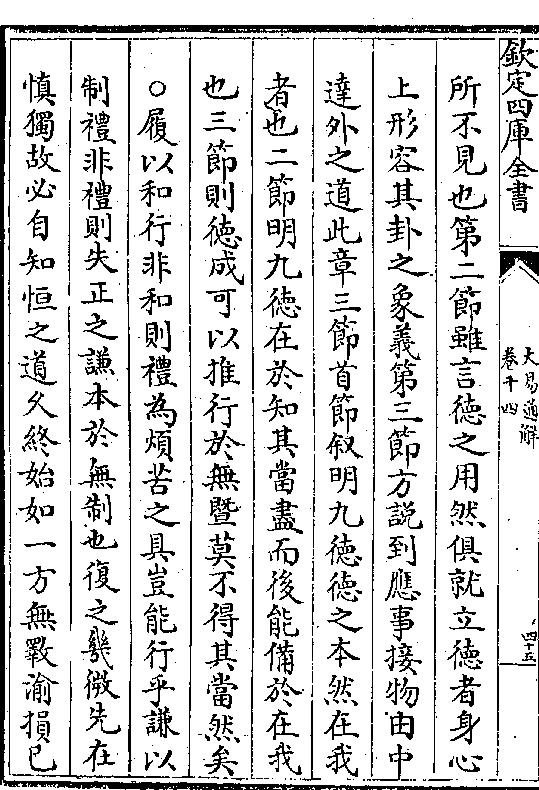 欽定四庫全書
大易通解
卷十四
四十五
所不見也第二節雖言德之用然俱就立德者身心
上形容其卦之象義第三節方說到應事接物由中
達外之道此章三節首節叙明九德德之本然在我
者也二節明九德在於知其當盡而後能備於在我
也三節則德成可以推行於無暨莫不得其當然矣
○履以和行非和則禮為煩苦之具豈能行乎謙以
制禮非禮則失正之謙本於無制也復之幾微先在
慎獨故必自知恒之道久終始如一方無斁渝損已